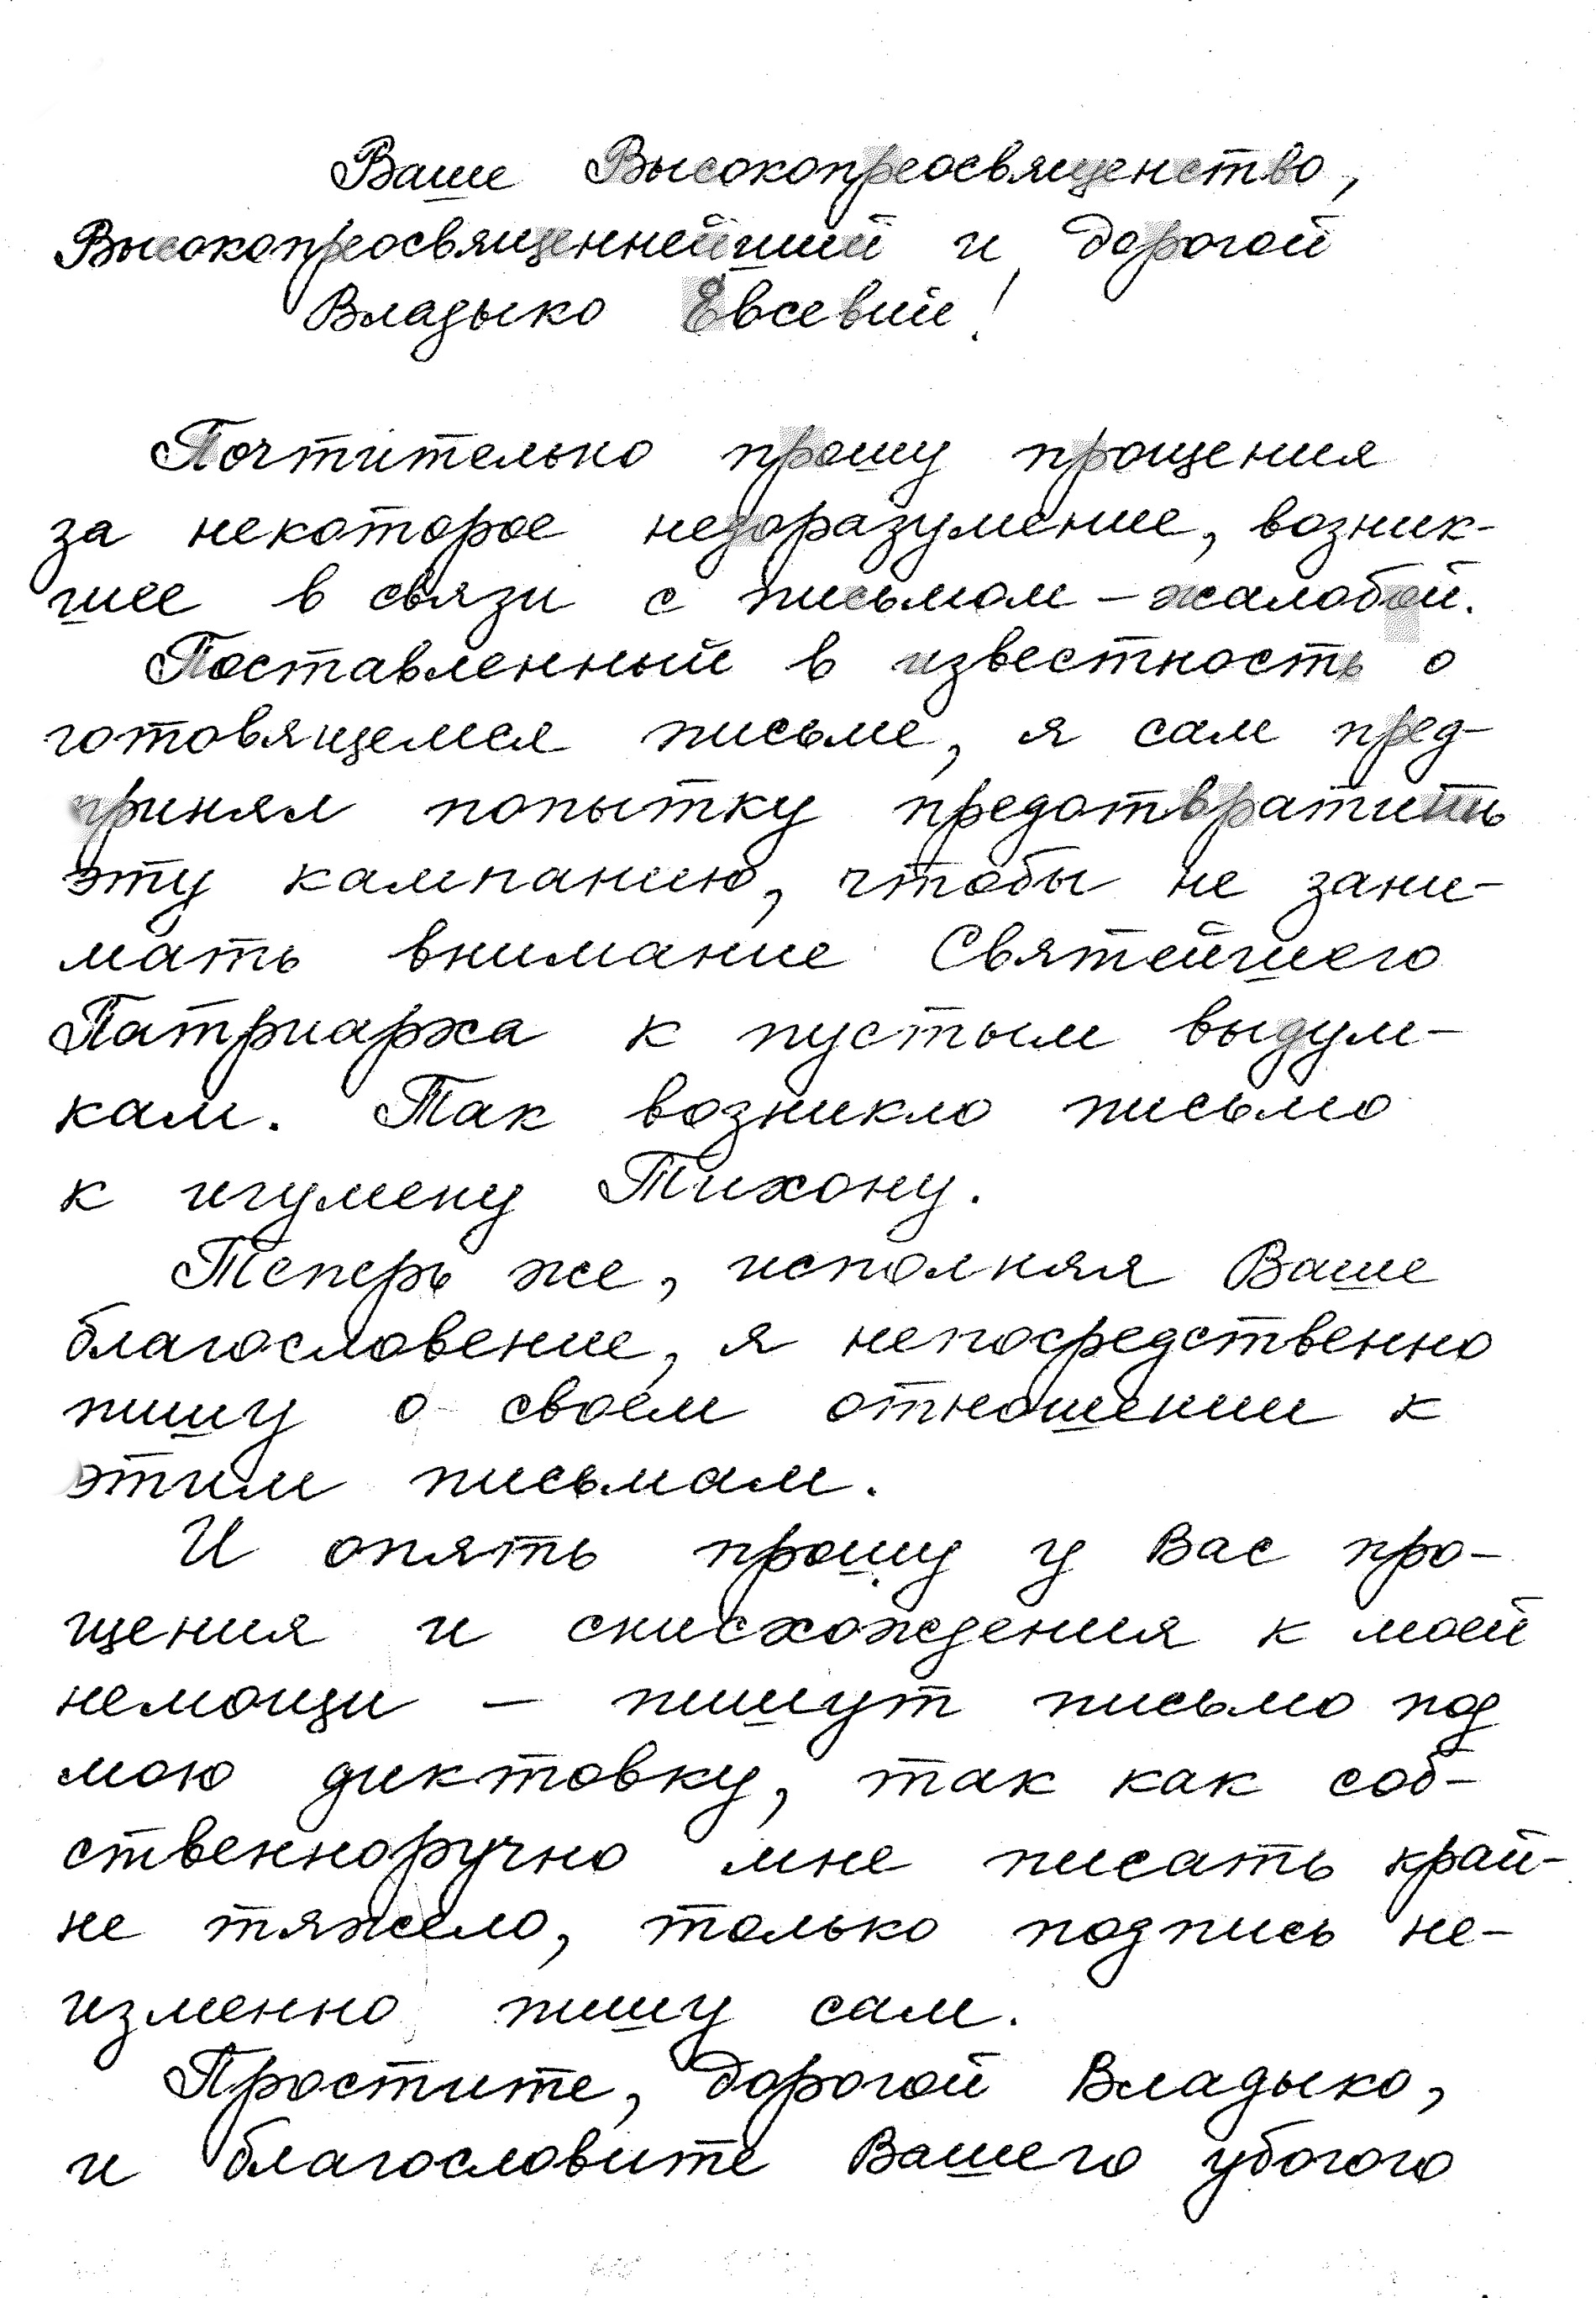 Ваше Высокопреосвященство,
Высокопреосвященнейший и дорогой
Владыко Евсевий!
Почтительно прошу прощения
за некоторое недоразумение, возник-
шее в связи с письмом – жалобой.
Поставленный в известность о
готовящемся письме, я сам пред-
принял попытку предотвратить
эту кампанию, чтобы не зани-
мать внимание Святейшего
Патриарха к пустым выдум-
кам. Так возникло письмо
к игумену Тихону.
Теперь же, исполняя Ваше
благословение, я непосредственно
пишу о своём отношении к
этим письмам.
И опять прошу у Вас про-
щения и снисхождения к моей
немощи – пишут письмо под
мою диктовку, так как соб-
ственноручно мне писать край-
не тяжело, только подпись не-
изменно пишу сам.
Простите, дорогой Владыко,
и благословите Вашего убогого